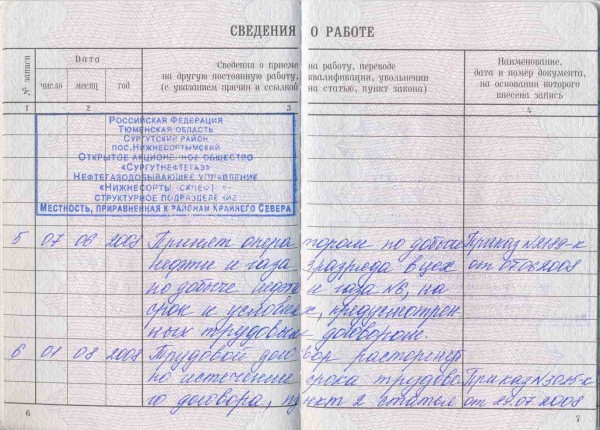 СВЕДЕНИЯ О РАБОТЕ
№ записи
Дата
число месяц год
Сведения о приеме на работу, переводе
на другую постоянную работу, квалификации, увольнении
(с указанием причин и ссылкой на статью, пункт закона)
Наименование,
дата и номер документа,
на основании которого
внесена запись
1 2 3 4
РОССИЙСКАЯ ФЕДЕРАЦИЯ
ТЮМЕНСКАЯ ОБЛАСТЬ
СУРГУТСКИЙ РАЙОН
ПОС.НИЖНЕСОРТЫМСКИЙ
ОТКРЫТОЕ АКЦИОНЕРНОЕ ОБЩЕСТВО
«СУРГУТНЕФТЕГАЗ»
НЕФТЕГАЗОДОБЫВАЮЩЕЕ УПРАВЛЕНИЕ
СТРУКТУРНОЕ ПОДРАЗДЕЛЕНИЕ
МЕСТНОСТЬ, ПРИРАВНЕННАЯ К РАЙОНАМ КРАЙНЕГО СЕВЕРА
5 07 06 2008 Принят оператором по добыче Приказ
нефти и газа разряда в цех от 07.06.2008
по добыче нефти и газа №6, на
срок и условиях, предусмотрен
ных трудовым договором.
6 01 08 2008 Трудовой договор расторгнут
по истечении срока трудово Приказ №3025-к
го договора, пункт 2 статьи от 29.07.2008
6 7